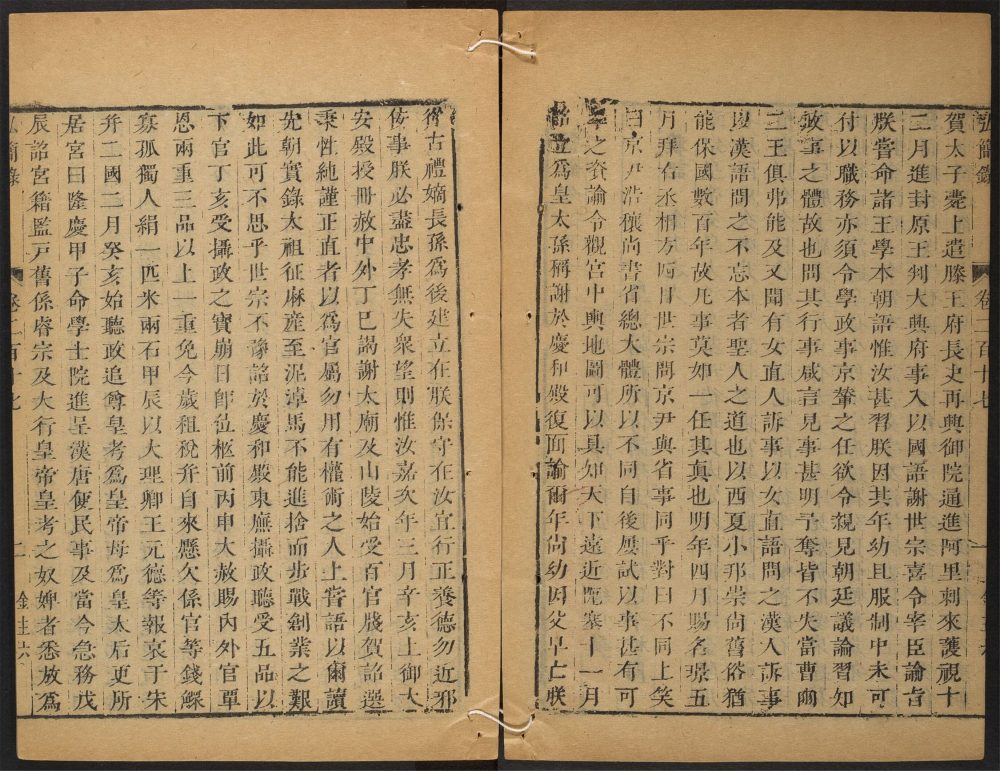 弘簡錄 卷二百十七
賀太子薨上遣滕王府長史再興御院通進阿里剌來護視十
二月進封原王判大興府事入以國語謝世宗喜令宰臣諭旨
朕嘗命諸王學本朝語惟汝甚習朕因其年幼且服制中未可
付以職務亦須令學政事京輦之任欲令親見朝廷議論習知
政事之體故也問其行事咸言見事甚明予奪皆不失當曹豳
二王俱弗能及又聞有女直人訴事以女直語問之漢人訴事
以漢語問之不忘本者聖人之道也以西夏小邦崇尚舊俗猶
能保國數百年故凡事莫如一任其真也明年四月賜名璟五
月拜右丞相方四日世宗問京尹與省事同乎對曰不同上笑
曰京尹浩穰尚書省總大體所以不同自後屢試以事甚有可
之資諭令觀宮中輿地圖可以具知天下遠近阨塞十一月
詔立為皇太孫稱謝於慶和殿復面諭爾年尚幼因父早亡朕
從古禮嫡長孫為後建立在朕保守在汝宜行正養德勿近邪
佞事朕必盡忠孝無失衆望則惟汝嘉次年三月辛亥上御大
安殿授冊赦中外丁巳謁謝太廟及山陵始受百官牋賀詔選
秉性純謹正直者以為官屬勿用有權術之人上嘗語以爾讀
先朝實錄太祖征麻產至泥淖馬不能進捨而步戰創業之艱
如此可不思乎世宗不豫詔於慶和殿東廡攝政聽受五品以
下官丁亥受攝政之寶崩日卽位柩前丙申大赦賜內外官覃
恩兩重三品以上一重免今歲租稅幷自來懸欠係官等錢鰥
寡孤獨人絹一匹米兩石甲辰以大理卿王元德等報哀于宋
幷二國二月癸亥始聽政追尊皇考為皇帝母為皇太后更所
居宮曰隆慶甲子命學士院進呈漢唐便民事及當今急務戊
辰詔宮籍監戶舊係睿宗及大行皇帝皇考之奴婢者悉放為
簡錄 卷二百十七 二 金 六